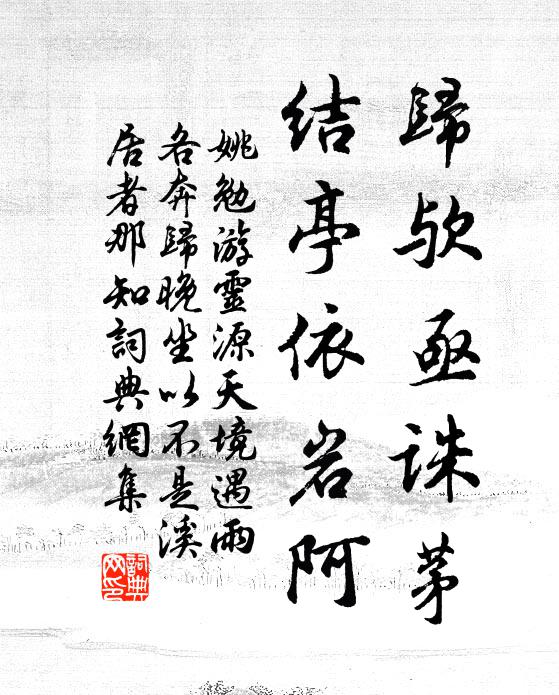 歸欤亟誅茅
结亭依岩阿
姚勉游靈源天境遇雨
各奔歸晚坐以不是溪
居者那知詞典網集
詞典网印